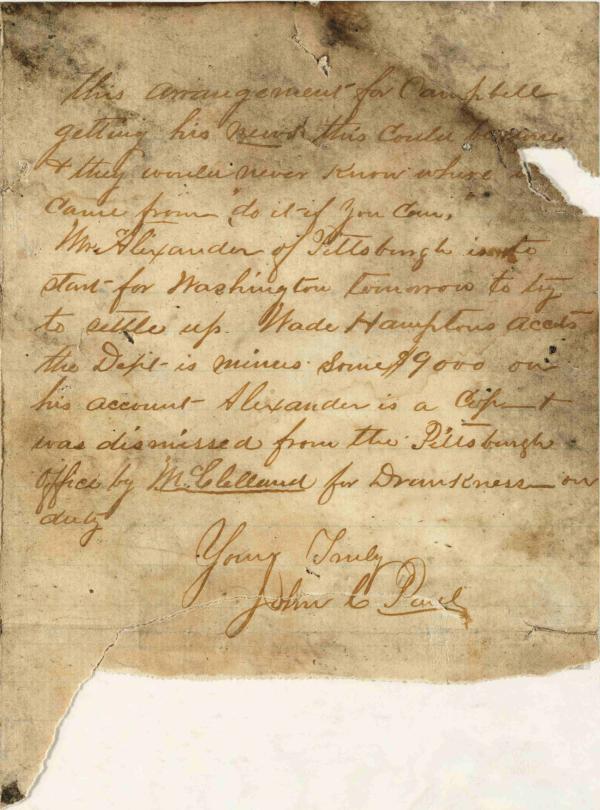 this arrangement for Campbell
getting his news this could
& they would never know where
came from "do it if you can,"
Mr Alexander of Pittsburgh is to
start for Washington tomorrow to try
to settle up. Wade Hamptons accts
the Dept is minus some $9000 on
his account Alexander is a Cop &
was dismissed from the Pittsburgh
Office by McClelland for Drunkness on
duty
Yours Truly
John C Paul